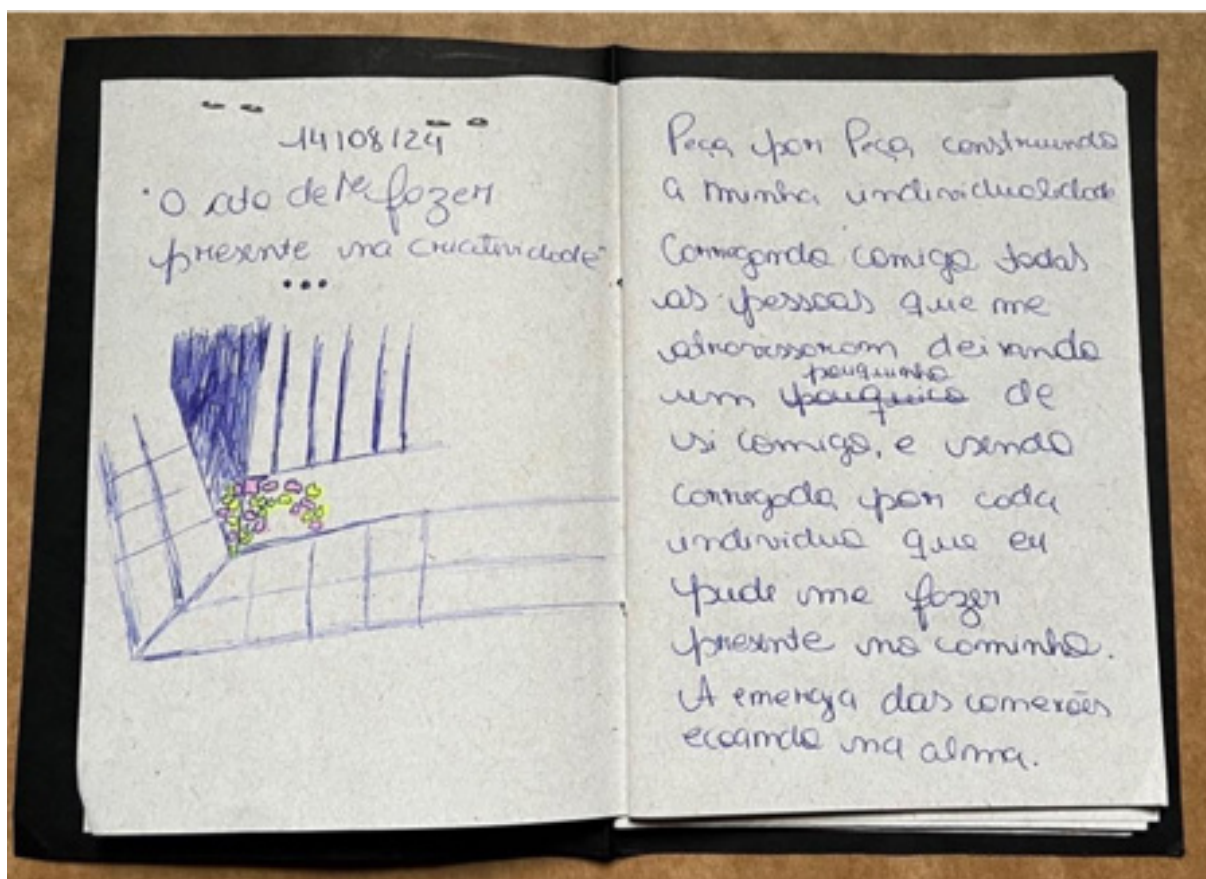 14108124
"O ato de refazer
presente na criatividade"
...
Peça por Peça construindo
a minha individualidade
Carregando comigo todas
as pessoas que me
atravessaram deixando
pouquinho
um pouquico de
si comigo, e sendo
carregada por cada
individuo que eu
pude me fazer
presente no caminho.
A energia das conexões
ecoando na alma.